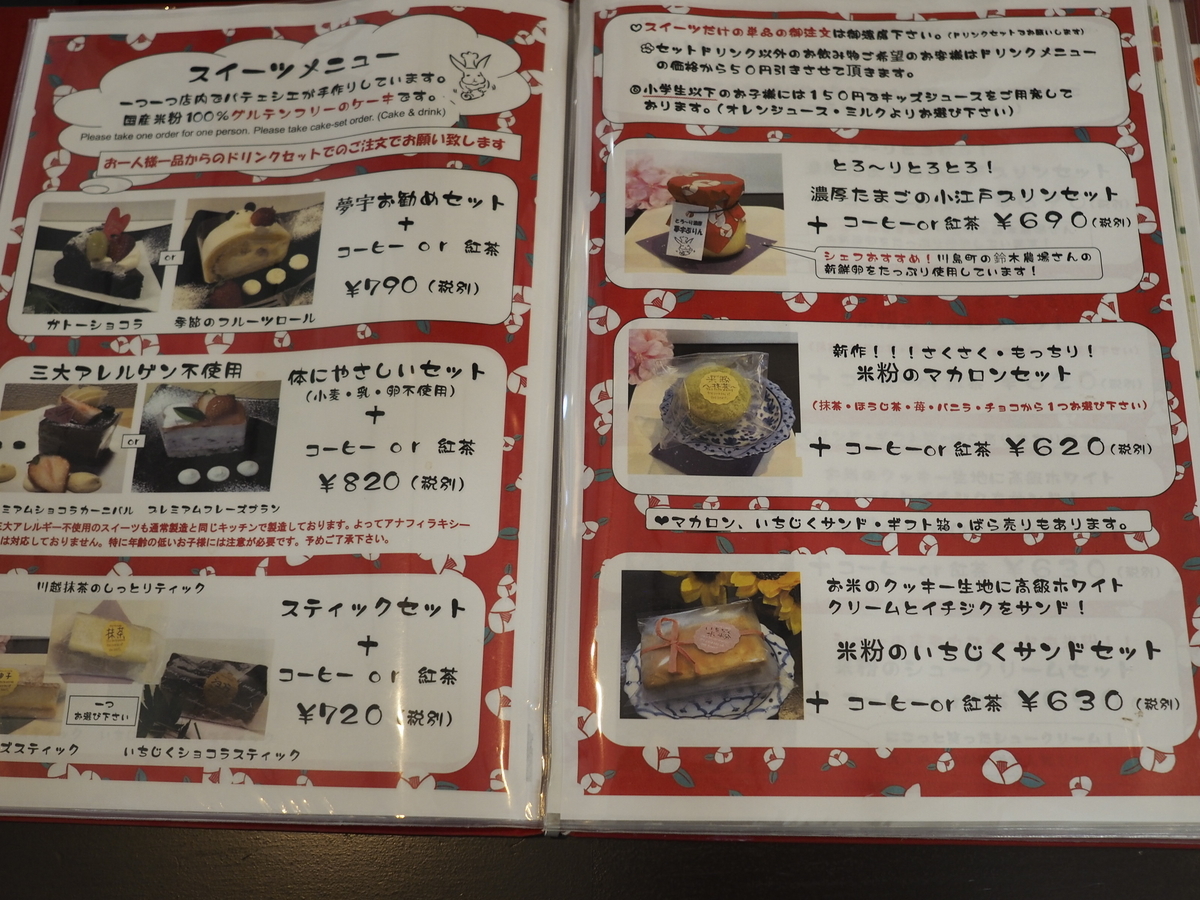 スイーツメニュー
一つ一つ店内でパティシエが手作りしています。
国産米粉100%グルテンフリーのケーキです。
Please take one order for one person. Please take cake-set order. (Cake & drink)
お一人様一品からのドリンクセットでのご注文でお願い致します
夢宇お勧めセット
+
コーヒー or 紅茶
¥790(税別)
or
ガトーショコラ
季節のフルーツロール
三大アレルゲン不使用
体にやさしいセット
(小麦・乳・卵不使用)
+
コーヒー or 紅茶
¥820(税別)
or
ミアムショコラカーニバル
プレミアムフレーズブラン
三大アレルギー不使用のスイーツも通常製造と同じキッチンで製造しております。よってアナフィラキシー
は対応しておりません。特に年齢の低いお子様には注意が必要です。予めご了承下さい。
川越抹茶のしっとりティック
スティックセット
+
コーヒー or 紅茶
¥720(税別)
抹茶
一つ
お選び下さい
ズスティック
いちじくショコラスティック
♡スイーツだけの単品の御注文は御遠慮下さい。(ドリンクセットでお願いします)
セットドリンク以外のお飲み物ご希望のお客様はドリンクメニュー
の価格から50円引きさせて頂きます。
◎小学生以下のお子様には150円でキッズジュースをご用意して
おります。(オレンジュース・ミルクよりお選び下さい)
とろ~りとろとろ!
濃厚たまごの小江戸プリンセット
+ コーヒー or 紅茶 ¥690(税別)
シェフおすすめ!川島町の鈴木農場さんの
新鮮卵をたっぷり使用しています!
新作!!!さくさく・もっちり!
米粉のマカロンセット
(抹茶・ほうじ茶・苺・バニラ・チョコから1つお選び下さい)
+ コーヒーor紅茶 ¥620(税別)
♥マカロン、いちじくサンド・ギフト箱・ばら売りもあります。
お米のクッキー生地に高級ホワイト
クリームとイチジクをサンド!
米粉のいちじくサンドセット
+ コーヒーor紅茶 ¥630(税別)